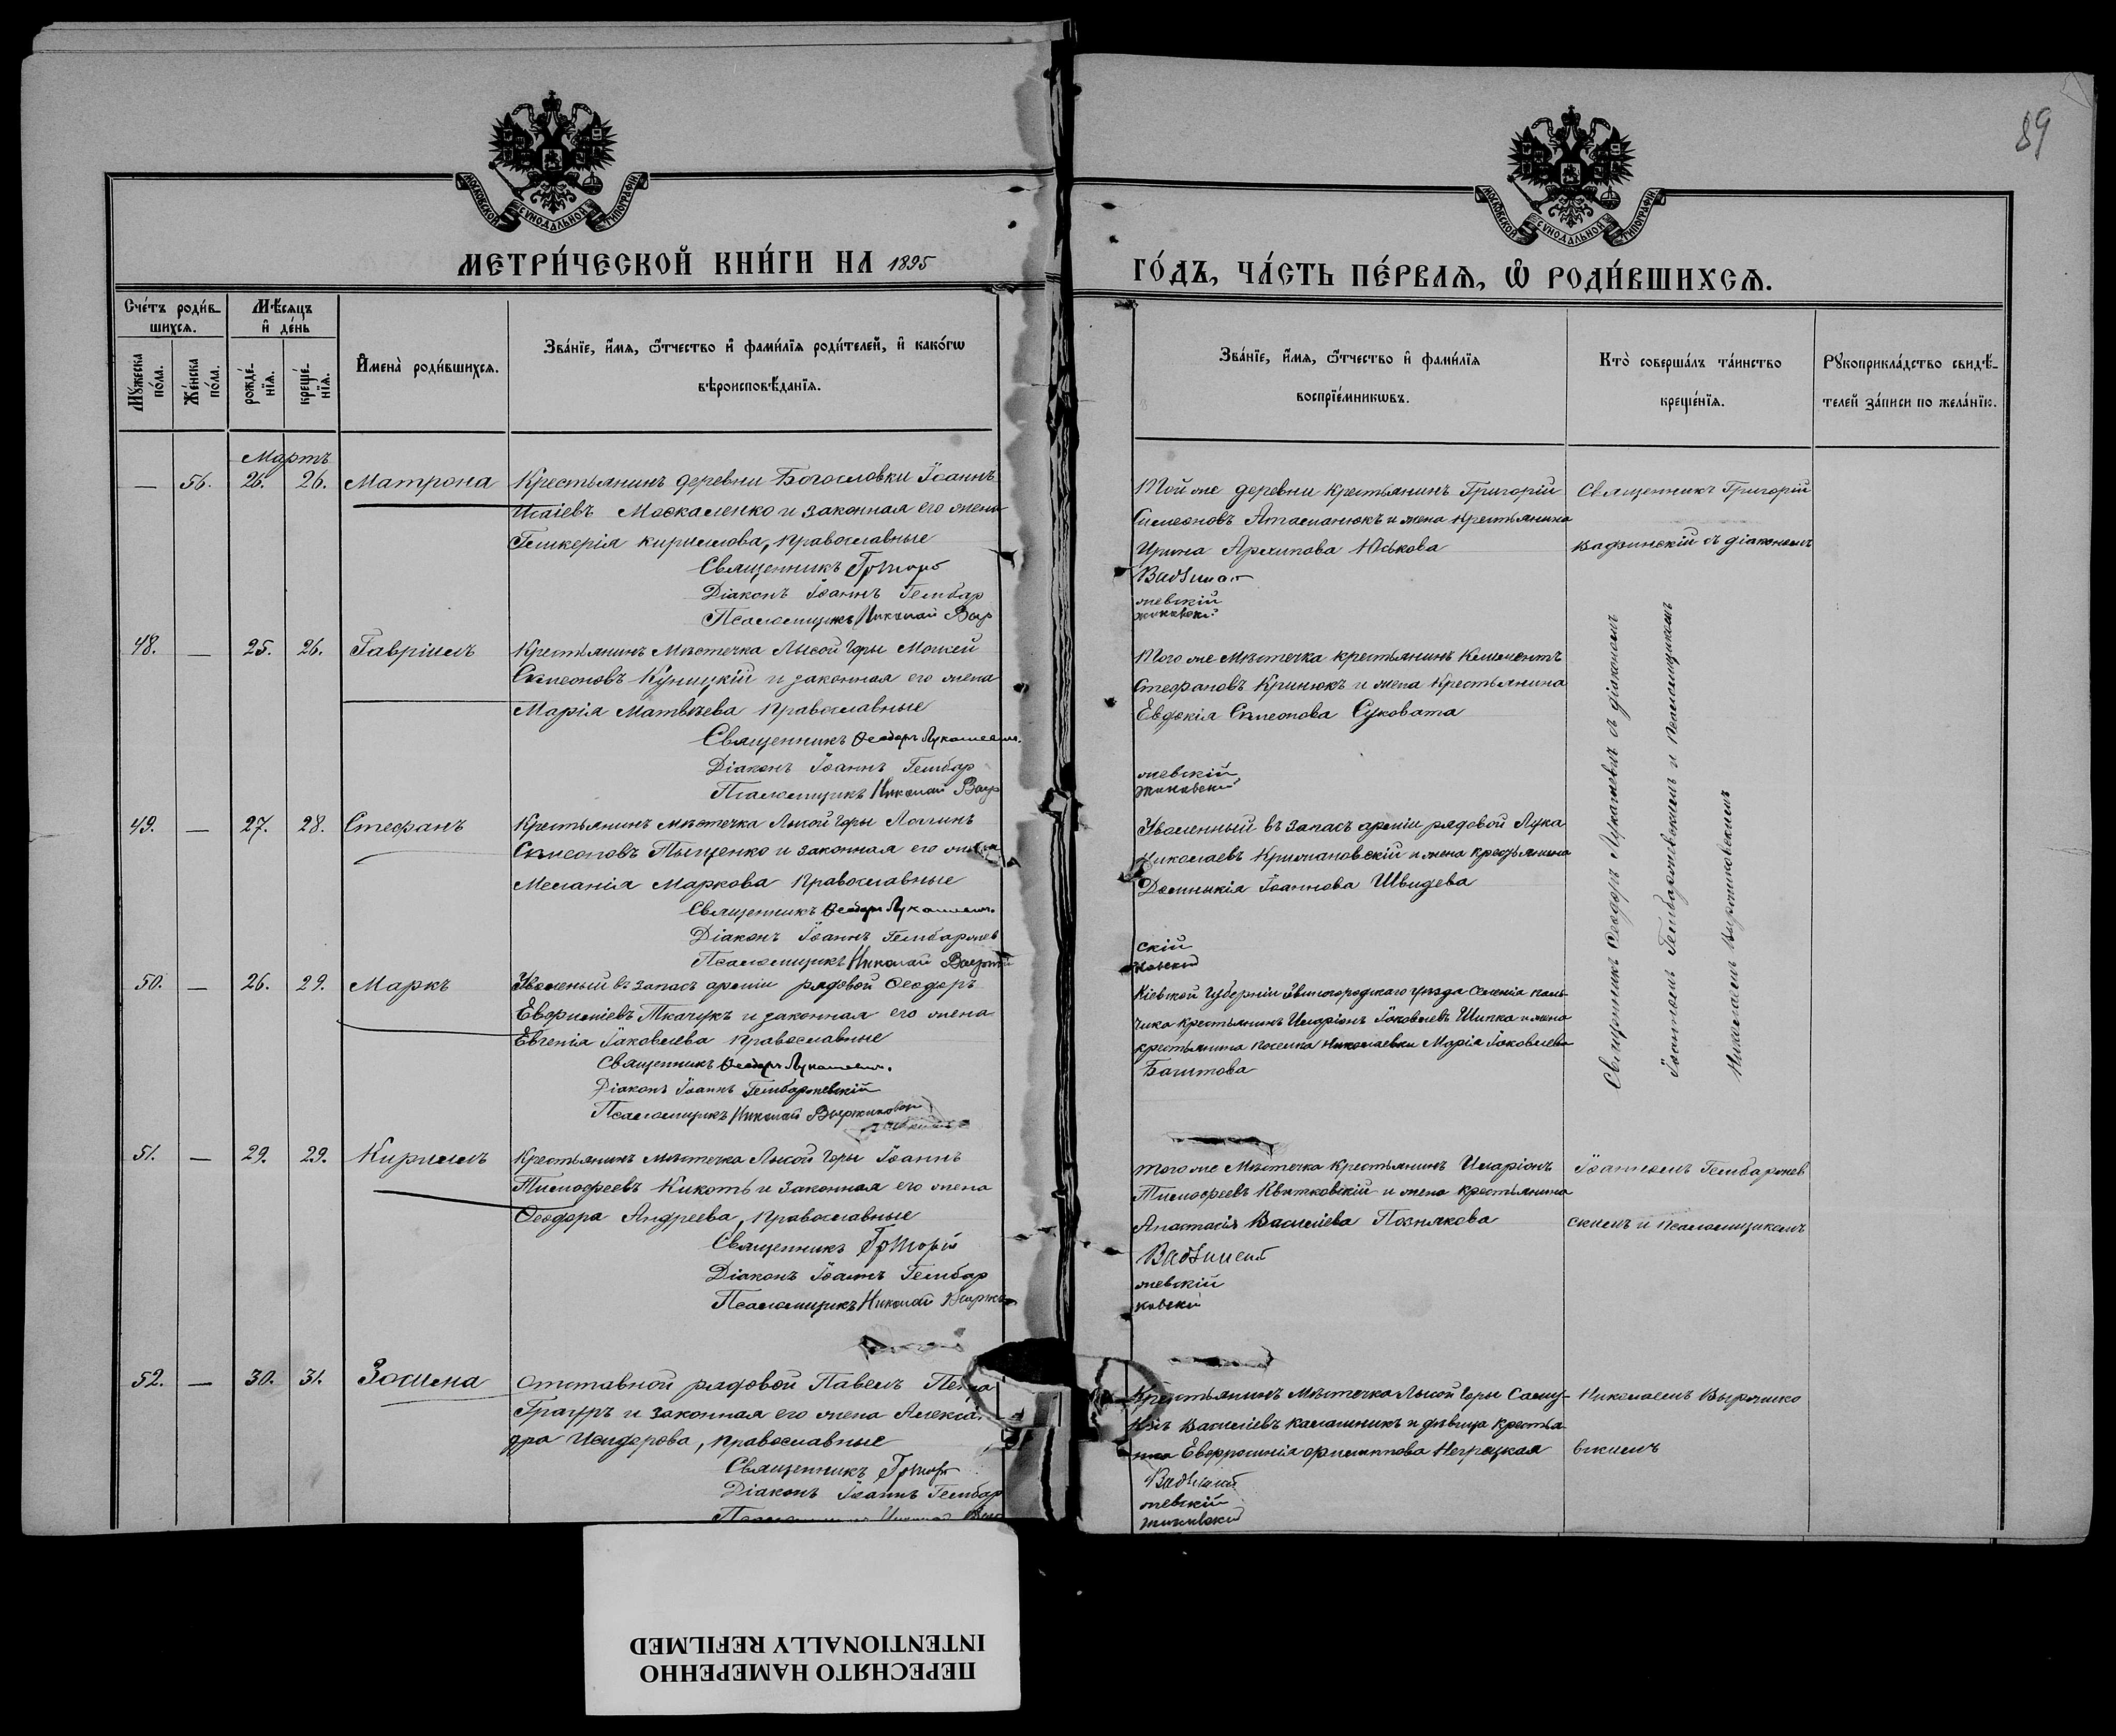 89
МОСКОВСКОЙ СѴНОДАЛЬНОЙ ТИПОГРАФІИ
МОСКОВСКОЙ СѴНОДАЛЬНОЙ ТИПОГРАФІИ
МЕТРИ́ЧЕСКОЙ КНИ́ГИ НА 1895
ГО́ДЪ, ЧА́СТЬ ПЕ́РВАѦ, Ѡ РОДИ́ВШИХСѦ.
Сче́тъ роди́в-
шихсѧ.
Мꙋ́жеска по́ла.
Же́нска по́ла.
Мѣ́сѧцъ и де́нь
рожде́нїѧ.
креще́нїѧ.
Имена̀ роди́вшихсѧ.
Зва́нїе, и́мѧ, ѻ́тчество и фами́лїѧ роди́телей, и како́гѡ
вѣроисповѣ́данїѧ.
Зва́нїе, и́мѧ, ѻ́тчество и фами́лїѧ
воспрїе́мникѡвъ.
Кто̀ соверша́лъ та́инство
креще́нїѧ.
Рꙋкоприкла́дство свидѣ́-
телей за́писи по жела́нїю.
Мартъ
— 56. 26. 26. Матрона
Крестьянинъ деревни Богословки Іоаннъ
Исаіевъ Москаленко и законная его жена
Гликерія Кириллова, православные
Священникъ Григорій
Діаконъ Іоаннъ Гембар
Псаломщикъ Николай Выр
Той же деревни крестьянинъ Григорій
Симеоновъ Атаманюкъ и жена крестьянина
Ирина Архипова Юськова
жевскій
жиковскій
Священникъ Григорій
Вадзинскій съ діакономъ
48. — 25. 26. Гавріилъ
Крестьянинъ Мѣстечка Лысой Горы Моисей
Симеоновъ Куницкій и законная его жена
Марія Матвѣева православные
Священникъ Ѳеодоръ Лукашевичъ.
Діаконъ Іоаннъ Гембар
Псаломщикъ Николай Выр
Того же Мѣстечка крестьянинъ Климентъ
Стефановъ Кринюкъ и жена крестьянина
Евдокія Симеонова Суковата
жевскій
жиковскій
Священникъ Ѳеодоръ Лукашевичъ съ діакономъ
Іоанномъ Гембаржевскимъ и псаломщикомъ
Николаемъ Выржиковскимъ
49. — 27. 28. Стефанъ
Крестьянинъ мѣстечка Лысой Горы Логгинъ
Симеоновъ Тыщенко и законная его жена
Меланія Маркова православные
Священникъ Ѳеодоръ Лукашевичъ
Діаконъ Іоаннъ Гембаржев
Псаломщикъ Николай Выржи
Уволенный въ запасъ арміи рядовой Лука
Николаевъ Крижановскій и жена крестьянина
Домникія Іоаннова Швидева
скій
ковскій
50. — 26. 29. Маркъ
Уволеный въ запасъ арміи рядовой Ѳеодоръ
Евфиміевъ Ткачукъ и законная его жена
Евгенія Іаковлева православные
Священникъ Ѳеодоръ Лукашевичъ.
Діаконъ Іоаннъ Гембаржевскій
Псаломщикъ Николай Выржиковскій
Кіевской Губерніи Звинигородскаго уѣзда селенія
чика крестьянинъ Иларіонъ Іаковлевъ Шипка и жена
крестьянина поселка Николаевки Марія Іаковлева
51. — 29. 29. Кириллъ
Крестьянинъ мѣстечка Лысой Горы Іоаннъ
Тимофеевъ Кикоть и законная его жена
Ѳеодора Андреева, православные
Священникъ Григорій
Діаконъ Іоаннъ Гембар
Псаломщикъ Николай Выржи
Того же Мѣстечка крестьянинъ Иларіонъ
Тимофеевъ Квятковскій и жена крестьянина
Анастасія Василіева Познякова
жевскій
ковскій
Іоанномъ Гембаржев
скимъ и псаломщикомъ
52. — 30. 31. Зосима
Отставной рядовой Павелъ
Грауръ и законная его жена Алексан
дра Исидорова, православные
Священникъ Григорій
Діаконъ Іоаннъ Гембар
Крестьянинъ Мѣстечка Лысой Горы Саму-
илъ Василіевъ Калашникъ и дѣвица крестья
нка Евфросинія Филиппова Негрецкая
жевскій
жиковскій
Николаемъ Выржико
вскимъ
ПЕРЕСНЯТО НАМЕРЕННО
INTENTIONALLY REFILMED